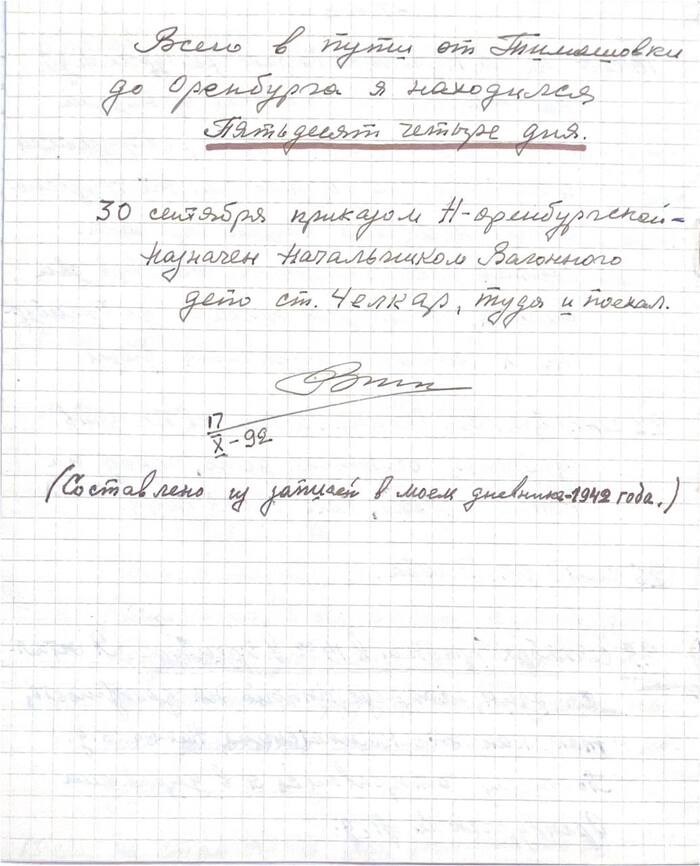 Всего в пути от Тимашовки
до Оренбурга я находился
Пятьдесят четыре дня.
30 сентября приказом Н-оренбургской-
назначен начальником Вагонного
депо ст. Челкар, туда и поехал.
17
X-92
(Составлено из записей в моем дневнике-1942 года.)